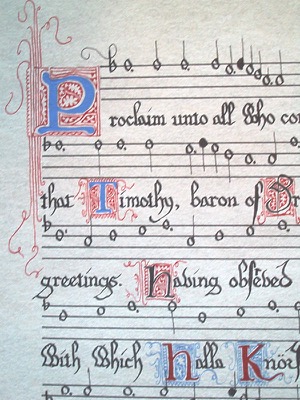 Proclaim unto all Who co
that Timothy, baron of Br
greetings. Having obserbed
With Which Halla Knör